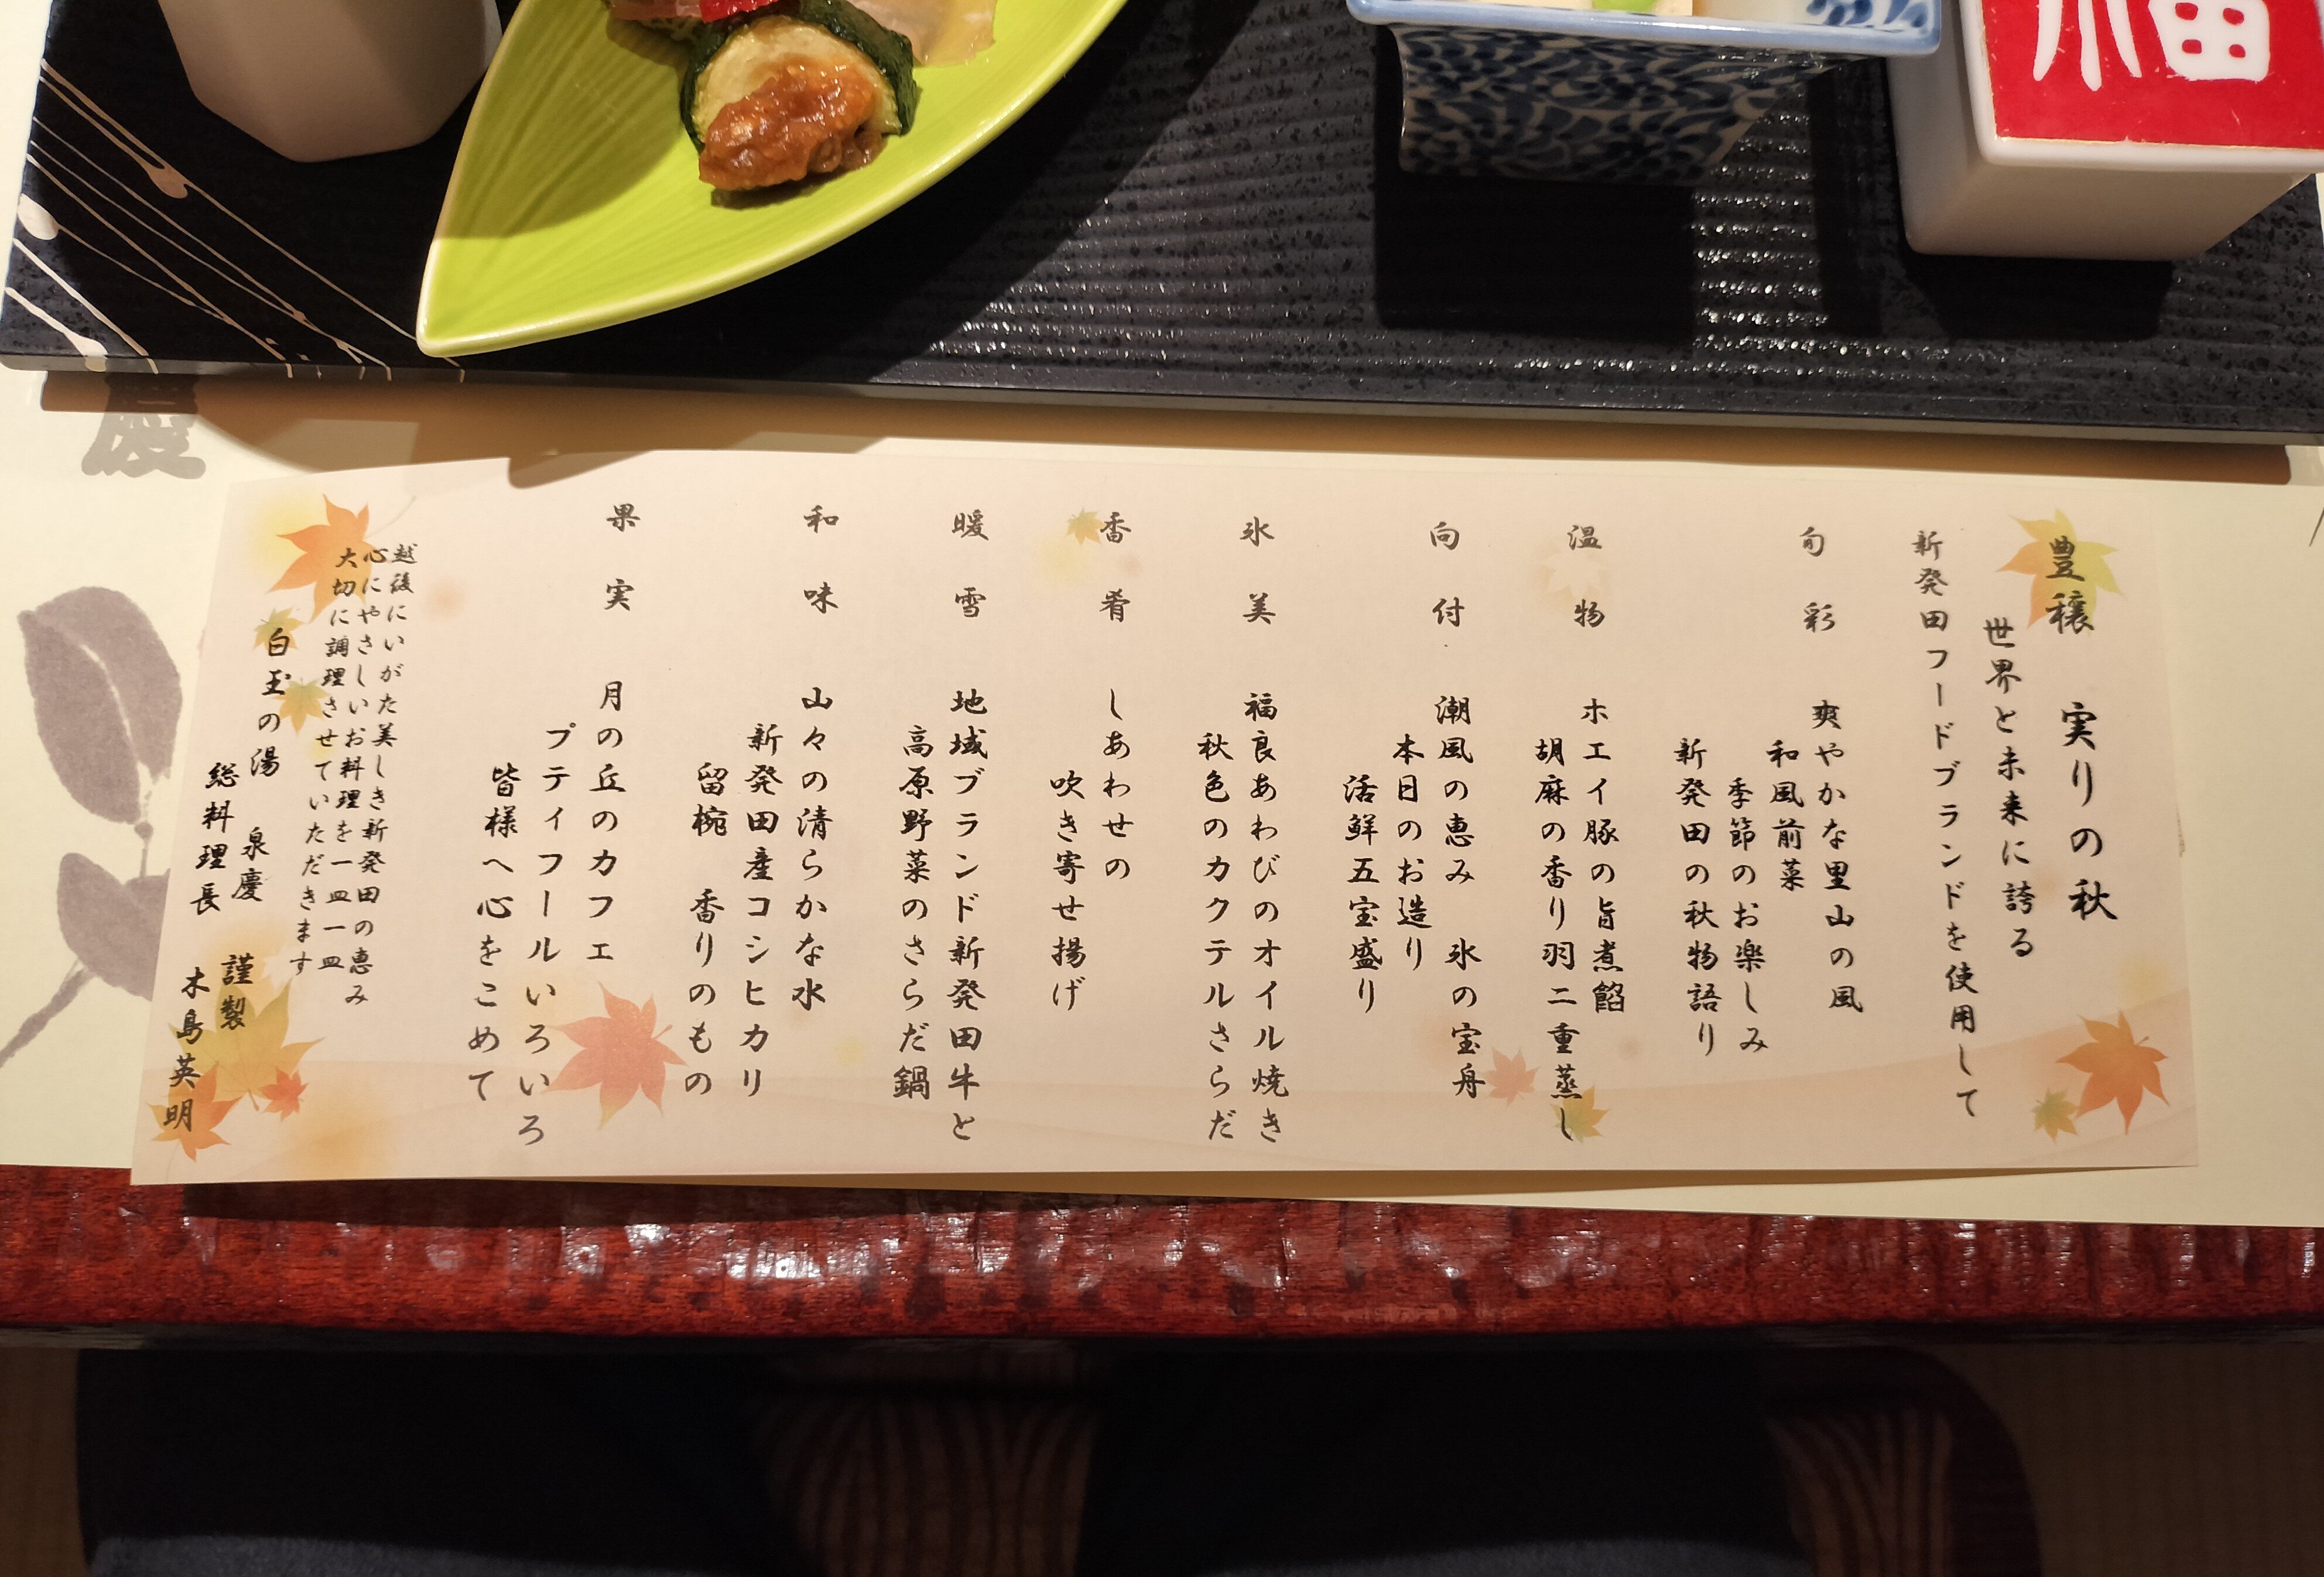 豊穣 実りの秋
世界と未来に誇る
新発田フードブランドを使用して
旬彩 爽やかな里山の風
和風前菜
季節のお楽しみ
新発田の秋物語り
温物 ホエイ豚の旨煮餡
胡麻の香り羽二重蒸し
向付 潮風の恵み 氷の宝舟
本日のお造り
活鮮五宝盛り
氷美 福良あわびのオイル焼き
秋色のカクテルさらだ
香肴 しあわせの
吹き寄せ揚げ
暖雪 地域ブランド新発田牛と
高原野菜のさらだ鍋
和味 山々の清らかな水
新発田産コシヒカリ
留椀 香りのもの
果実 月の丘のカフェ
プティフールいろいろ
皆様へ心をこめて
越後にいがた美しき新発田の恵み
心にやさしいお料理を一皿一皿
大切に調理させていただきます
白玉の湯 泉慶 謹製
総料理長 木島英明
福
慶